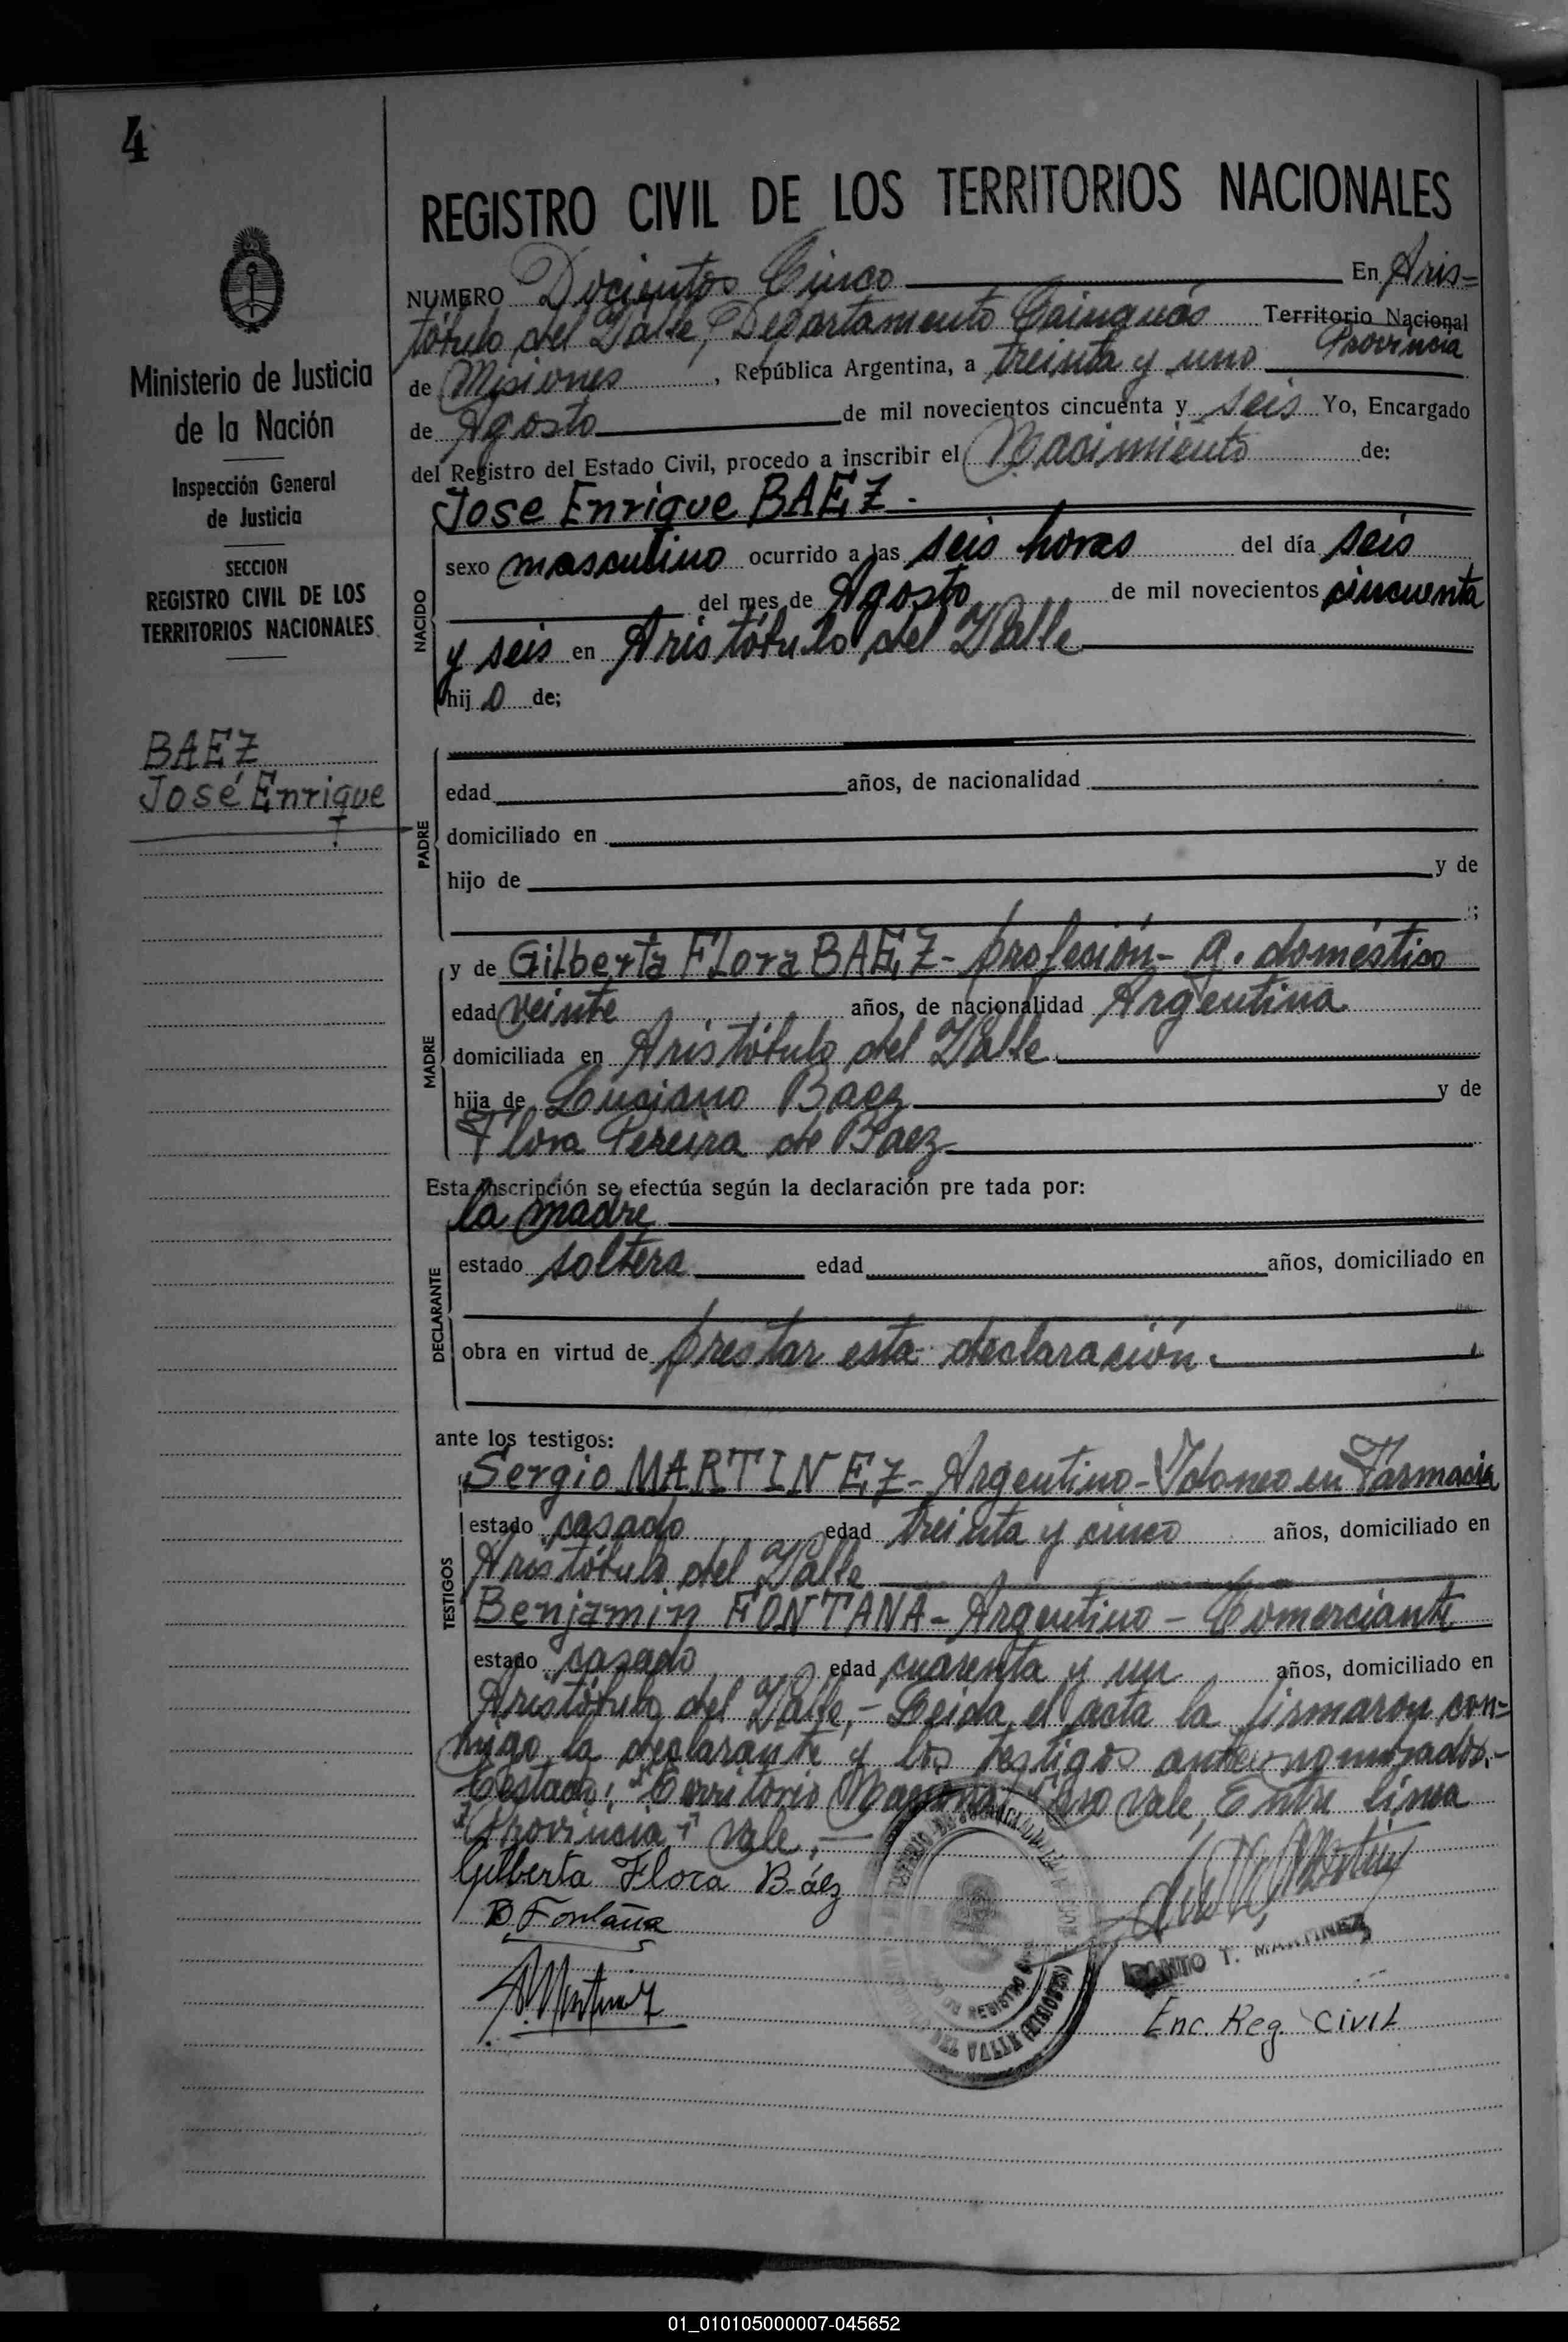 4
REGISTRO CIVIL DE LOS TERRITORIOS NACIONALES
NUMERO Docientos Cinco En Aris=
tótulo del Valle, Departamento Cainguás Territorio Nacional
Provincia
de Misiones, República Argentina, a treinta y uno
de Agosto de mil novecientos cincuenta y seis Yo, Encargado
del Registro del Estado Civil, procedo a inscribir el Nacimiento de:
Jose Enrique BAEZ.
NACIDO
sexo masculino ocurrido a las seis horas del día seis
del mes de Agosto de mil novecientos cincuenta
y seis en Aristótulo del Valle
hijo de;
Ministerio de Justicia
de la Nación
Inspección General
de Justicia
SECCION
REGISTRO CIVIL DE LOS
TERRITORIOS NACIONALES
BAEZ
José Enrique
PADRE
edad años, de nacionalidad
domiciliado en
hijo de y de
;
MADRE
y de Gilberta Flora BAEZ- profesión- q. doméstico
edad veinte años, de nacionalidad Argentina
domiciliada en Aristótulo del Valle
hija de Luciano Baez y de
Flora Pereira de Baez
Esta inscripción se efectúa según la declaración pre tada por:
la madre
DECLARANTE
estado soltera edad años, domiciliado en
obra en virtud de prestar esta declaración.
ante los testigos:
TESTIGOS
Sergio MARTINEZ- Argentino- Idoneo en Farmacia
estado casado edad treinta y cinco años, domiciliado en
Aristótulo del Valle
Benjamin FONTANA- Argentino - Comerciante
estado casado edad cuarenta y un años, domiciliado en
Aristótulo del Valle,- Leida el acta la firmaron con=
migo la declarante y los testigos
Testado: "Territorio Nacional" no vale, Entre linea
"Provincia" Vale,-
Gilberta Flora Báez
B. Fontana
S. Martinez
SANTO T. MARTINEZ
Enc. Reg. Civil
01_010105000007-045652